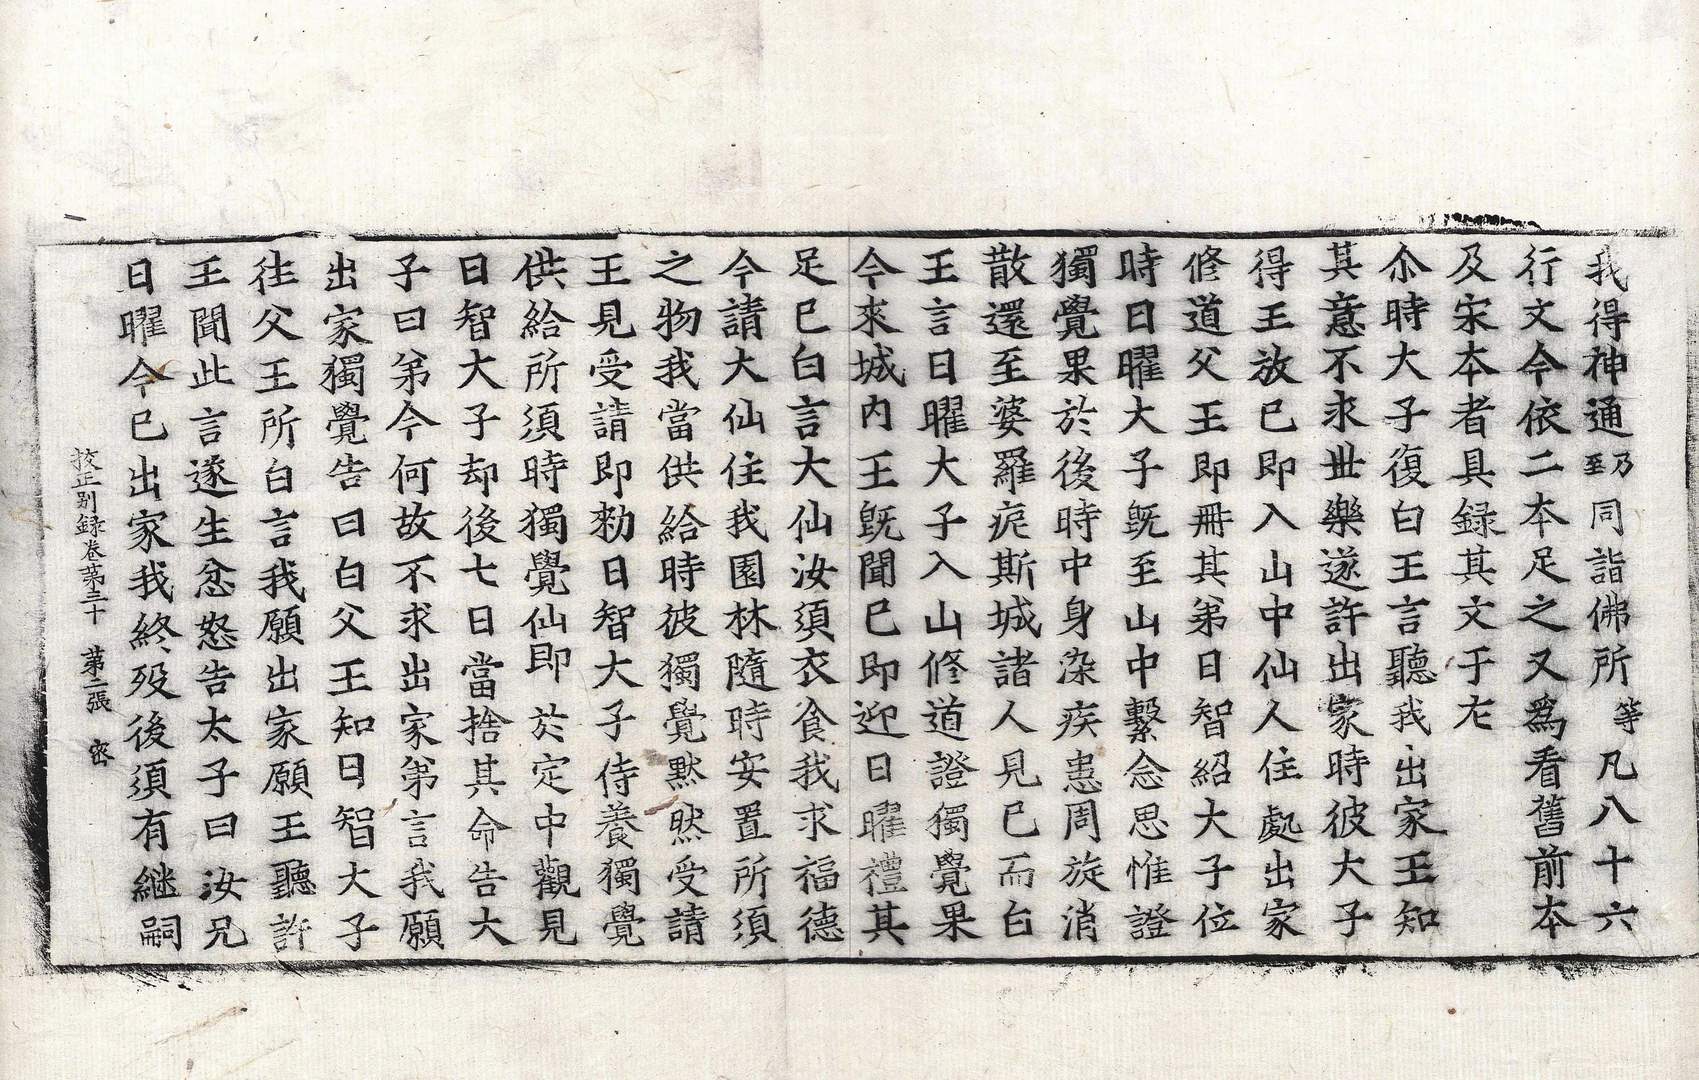 我得神通乃至同詣佛所等凡八十六
行文今依二本足之又爲看舊前本
及宋本者具録其文于左
尒時大子復白王言聽我出家王知
其意不求丗樂遂許出家時彼大子
得王放已即入山中仙人住處出家
修道父王即冊其弟日智紹大子位
時日曜大子旣至山中繫念思惟證
獨覺果於後時中身染疾患周旋消
散還至婆羅疷斯城諸人見已而白
王言日曜大子入山修道證獨覺果
今來城内王旣聞已即迎日曜禮其
足已白言大仙汝須衣食我求福德
今請大仙住我園林隨時安置所須
之物我當供給時彼獨覺默然受請
王見受請即勑日智大子侍養獨覺
供給所須時獨覺仙即於定中觀見
日智大子却後七日當捨其命告大
子曰弟今何故不求出家弟言我願
出家獨覺告曰白父王知日智大子
往父王所白言我願出家願王聽許
王聞此言遂生忿怒告太子曰汝兄
日曜今已出家我終歿後須有継嗣
挍正别録卷第三十 第二張 密